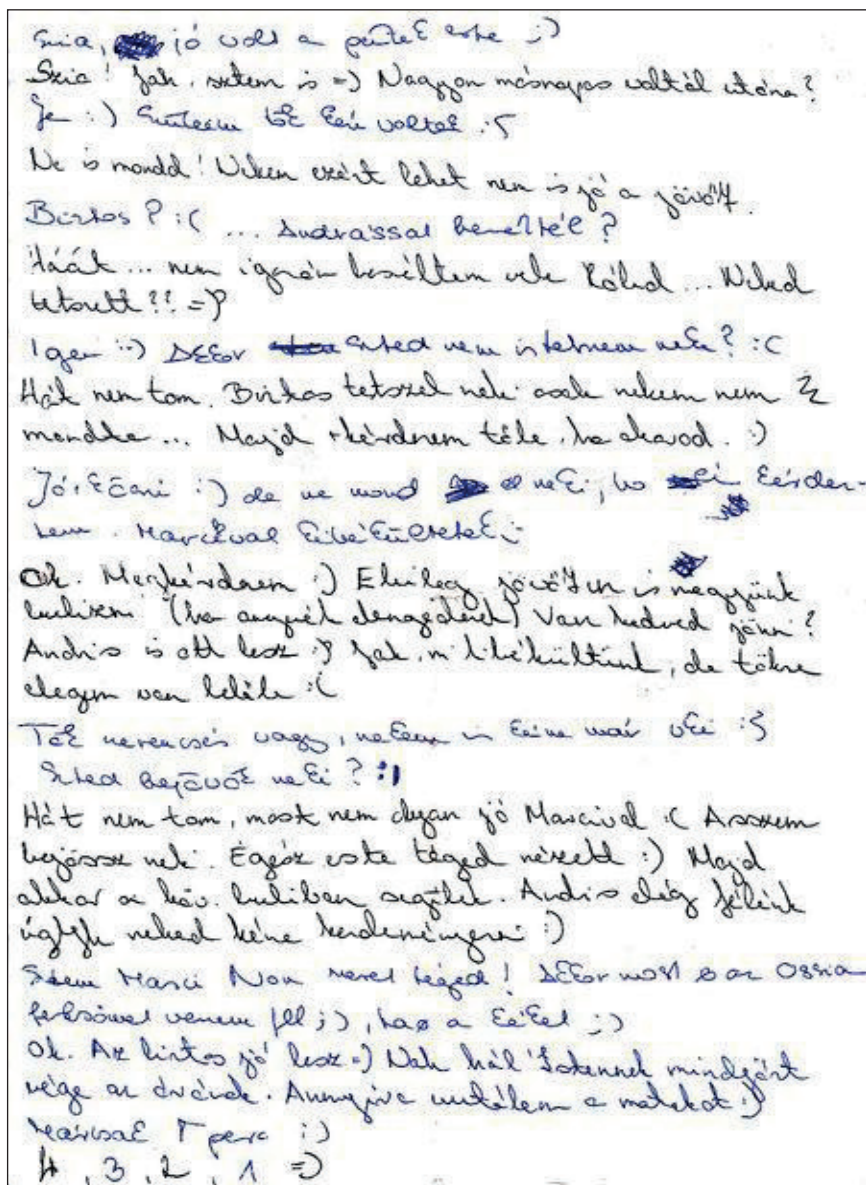 Szia, jó volt a péntek este ;)
Szia! Jah, sztem is =) Nagyon másnapos voltál utána?
Ja :) Szüleim tök kiv voltak :S
Ne is mondd! Nekem ezért lehet nem is jó a jövő7.
Biztos? :( ... Andrással beszéltél?
Háát ... nem igazán beszéltem vele Rólad ... Neked
tetszett?? =)
Igen :) Akkor szted nem is tetszem neki? :(
Hát nem tom. Biztos tetszel neki csak nekem nem
mondta ... Majd +kérdezem tőle, ha akarod. :)
Jó, köszi :) de ne mond el neki, ho én kérdez-
tem. Marcival kibékültetek
Ok. Megkérdezem :) Elvileg jövő7en is megyünk
bulizni (ha anyuék elengednek) Van kedved jönni?
Andris is ott lesz :) Jah, mi kibékültünk, de tökre
elegem van belőle :(
Tök szerencsés vagy, nekem is kéne már vki :S
Szted bejövök neki? :)
Hát nem tom, most nem olyan jó Marcival :( Asszem
bejössz neki. Egész este téged nézett :) Majd
akkor a köv. buliban segítek. Andris elég félénk
úgyhogy neked kéne kezdeményezni :)
Sztem Marci Non szeret téged! Akkor most is az
felsőmet veszem fel ;), haz a kéket ;)
Ok. Az biztos jó lesz =) Nah hál' Istennek mindjárt
vége az órának. Annyira utálom a matekot :)
Már csak 1 perc :)
4, 3, 2, 1 =)